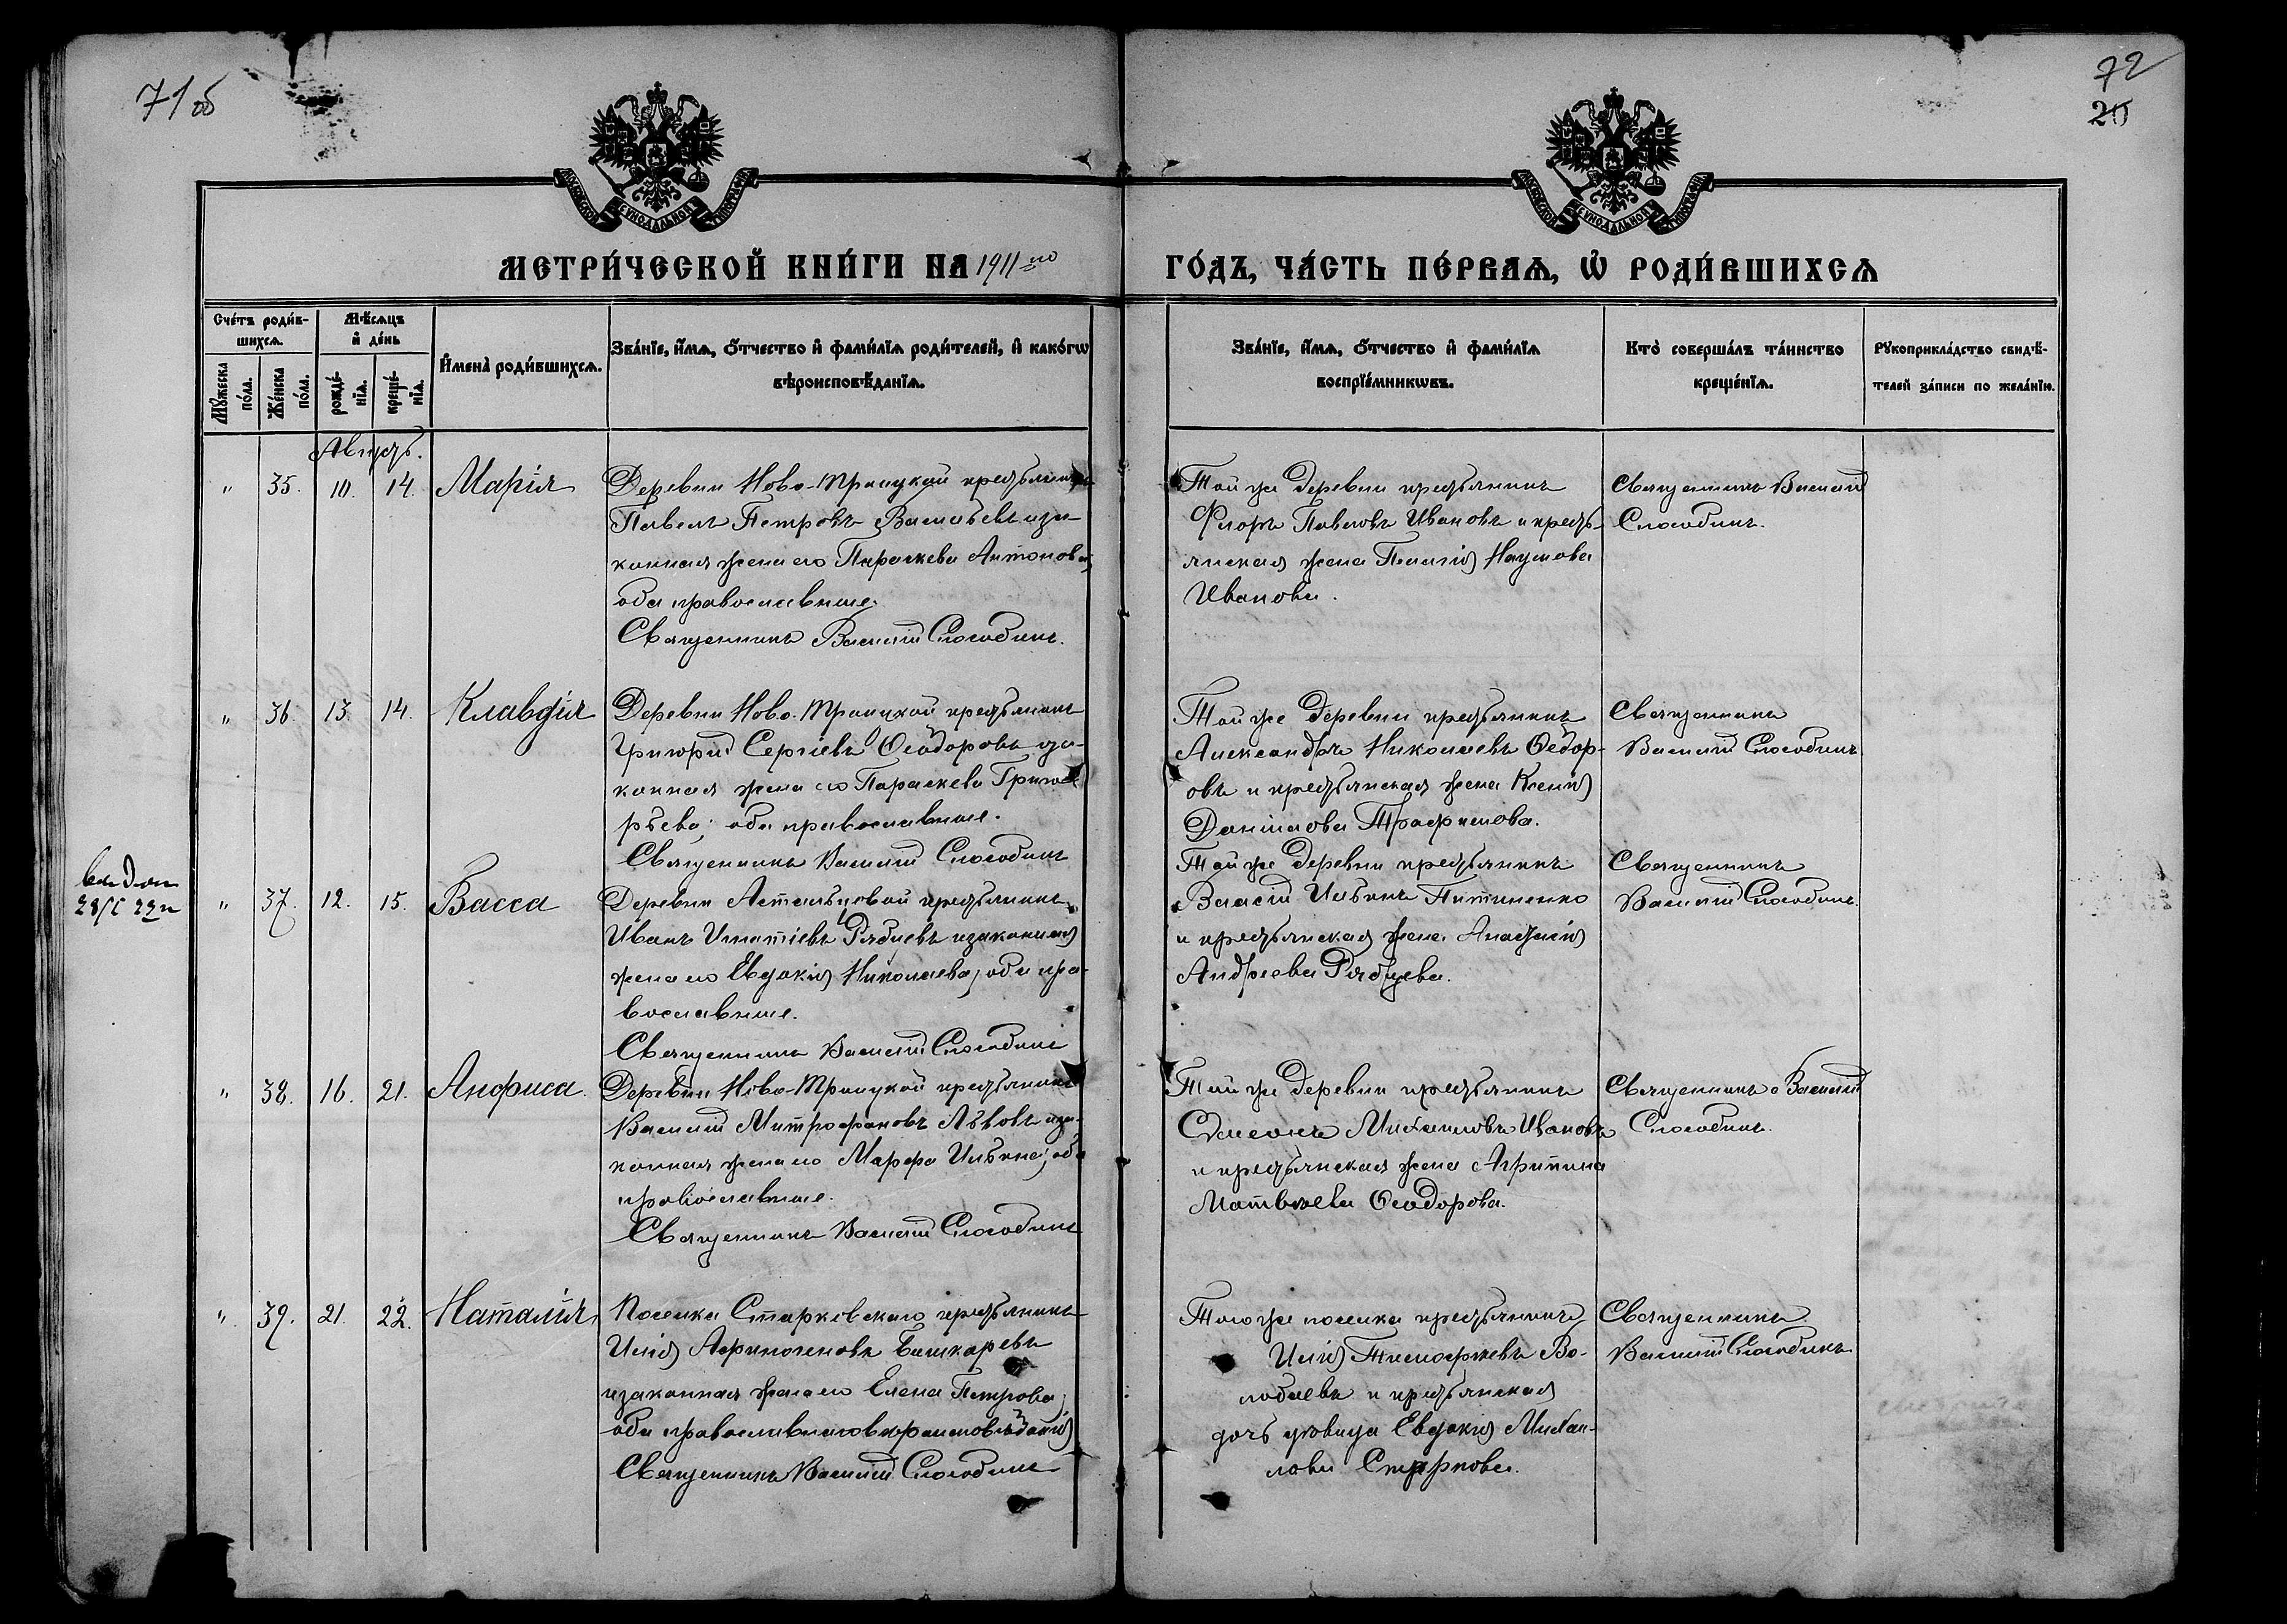 71об
72
20
МОСКОВСКОЙ СУНОДАЛЬНОЙ ТИПОГРАФІИ
МОСКОВСКОЙ СУНОДАЛЬНОЙ ТИПОГРАФІИ
МЕТРИ́ЧЕСКОЙ КНИ́ГИ НА 1911-ый
ГО́ДЪ, ЧА́СТЬ ПЕ́РВАЯ, Ѡ РОДИ́ВШИХСЯ
Сче́тъ роди́в-
шихся.
Мꙋ́жеска по́ла.
Же́нска по́ла.
Мѣ́сяцъ
и де́нь
рожде́-
нїя.
креще́-
нїя.
И҆мена̀ роди́вшихся.
Зва́нїе, и҆́мя, ѻ҆́тчество и҆ фами́лїя роди́телей, и҆ како́гѡ
вѣроисповѣ́данїя.
Зва́нїе, и҆́мя, ѻ҆́тчество и҆ фами́лїя
воспрїе́мникѡвъ.
Кто̀ соверша́лъ та́инство
креще́нїя.
Рꙋкоприкла́дство свидѣ́-
телей за́писи по жела́нїю.
Августъ.
" 35. 10. 14. Марія
Деревни Ново-Троицкой крестьянинъ
Павелъ Петровъ Васильевъ и за-
конная жена его Параскева Антонова,
оба православные.
Священникъ Василій Слободинъ.
Той же деревни крестьянинъ
Флоръ Павловъ Ивановъ и кресть-
янская жена Пелагія Наумова
Иванова.
Священникъ Василій
Слободинъ.
" 36. 13. 14. Клавдія
Деревни Ново-Троицкой крестьянинъ
Григорій Сергіевъ Ѳеодоровъ и за-
конная жена его Параскева Григо-
рьева; оба православные.
Священникъ Василій Слободинъ
Той же деревни крестьянинъ
Александръ Николаевъ Ѳедор-
овъ и крестьянская жена Ксенія
Даніилова Трофимова.
Священникъ
Василій Слободинъ.
" 37. 12. 15. Васса
Деревни Астальцовой крестьянинъ
Иванъ Игнатіевъ Рябцевъ и законная
жена его Евдокія Николаева; оба пра-
вославные.
Священникъ Василій Слободинъ
Той же деревни крестьянинъ
Власій Ильинъ Питиненко
и крестьянская жена Анастасія
Андреева Рябцева.
Священникъ
Василій Слободинъ.
" 38. 16. 21. Анфиса.
Деревни Ново-Троицкой крестьянинъ
Василій Митрофановъ Львовъ и за-
конная жена его Марфа Ильина; оба
православные.
Священникъ Василій Слободинъ
Той же деревни крестьянинъ
Симеонъ Михаиловъ Ивановъ
и крестьянская жена Агрипина
Матвѣева Ѳеодорова.
Священникъ Василій
Слободинъ.
" 39. 21. 22. Наталія
Поселка Старковскаго крестьянинъ
Илія Афиногеновъ Башкаревъ
и законная жена его Елена Петрова;
оба православнаго вѣроисповѣданія
Священникъ Василій Слободинъ
Того же поселка крестьянинъ
Илія Тимофеевъ Во-
лобаевъ и крестьянская
дочь вдовица Евдокія Михаи-
лова Старкова.
Священникъ
Василій Слободинъ